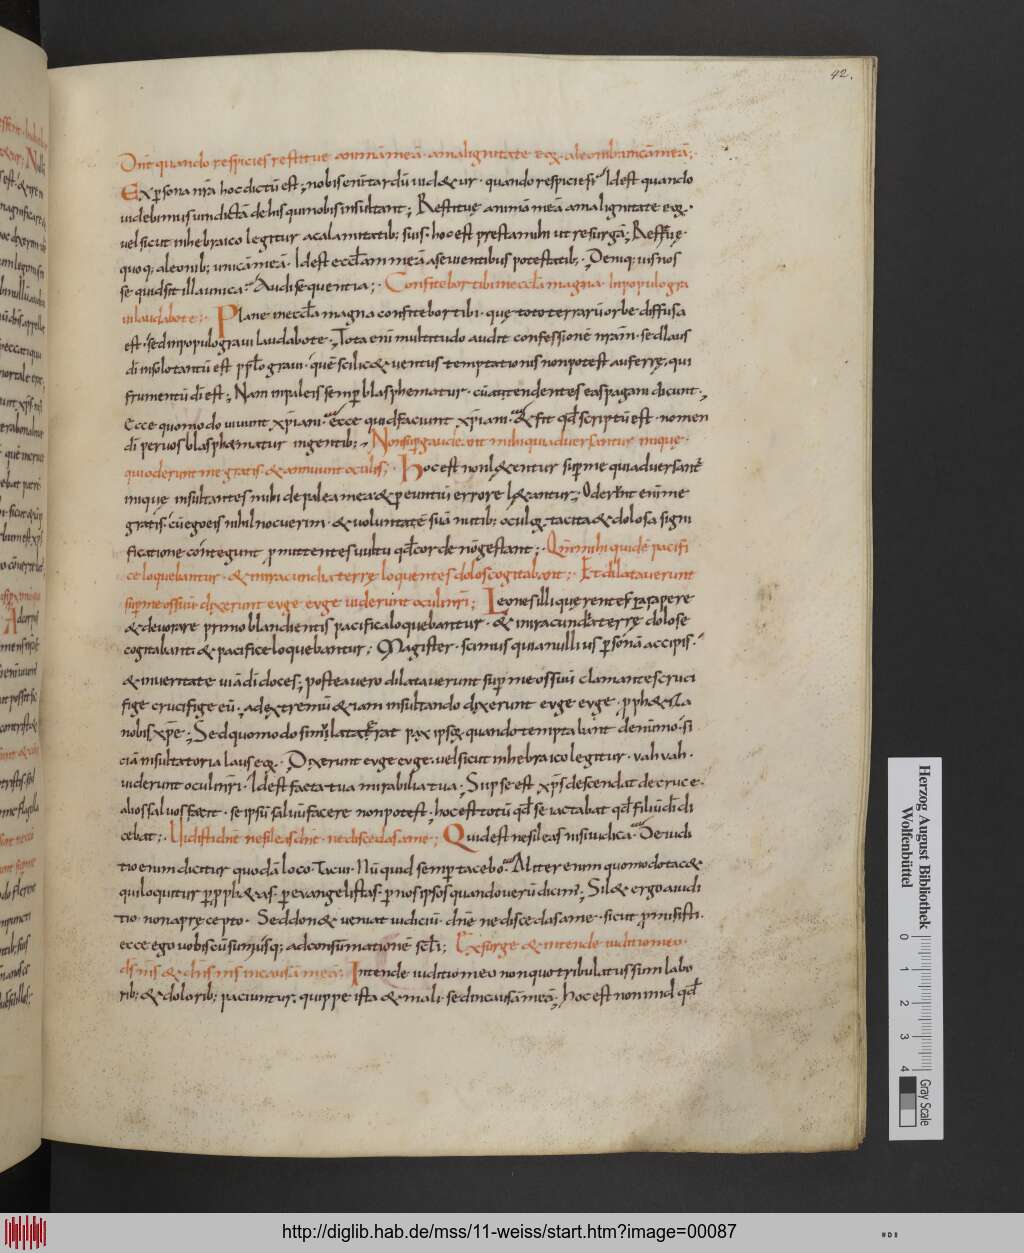 42.
Dnē quando respicies restitue animā meā · a malignitate eoꝝ · a leonib; unicā meā;
Ex persona nr̄a hoc dictū est; nobis enī tardū uidetur · quando respicies; Id est quando
uidebimus uindictā de his qui nobis insultant; Restituę animā meā a malignitate eoꝝ ·
uel sicut in hebraico legitur a calamitatib; suis · hoc est pręsta mihi ut resurgā;
quoq; a leonib; unicā meā · Id est ecclam meā a seuientibus potestatib; Deniq; uis nos
se quid sit illa unica; Audi sequentia; Confitebor tibi in eccla magna · In populo graui
laudabo te; Plane in eccla magna confitebor tibi · quę toto terrarū orbe diffusa
est · sed in populo graui laudabo te; Tota enī multitudo audit confessionē nr̄am · sed laus
dī in solo tantū est pplo graui · quē scilic& uentus temptationis non potest auferre, qui
frumentū dī est; Nam in paleis semp blasphematur · cū attendentes eas pagani dicunt ·
Ecce quomodo uiuunt xp̄iani · ecce quid faciunt xp̄iani · & fit qđ scriptū est · nomen
dī per uos blasphematur in gentib; Non supgaudeant mihi qui aduersantur inique ·
qui oderunt me gratis · & annuunt oculis; Hoc est non l&entur sup me qui aduersant
inique insultantes mihi de palea mea & p euntiū errore l&antur; Oderunt enī me
gratis · cū ego eis nihil nocuerim · & uoluntatē suā nutib; oculoꝝ tacita & dolosa signi
ficatione contegunt pmittentes uultu qđ corde nō gestant; Qm̄ mihi quidē pacifi
ce loquebantur · & in iracundia terrę loquentes dolos cogitabant; Et dilatauerunt
sup me os suū · dixerunt euge euge uiderunt oculi nr̄i; Leones illi querentes rapere
& deuorare primo blandientis pacifica loquebantur · & in iracundia terrę dolose
cogitabant · & pacifice loquebantur; Magister · scimus quia nullius psonā accipis ·
& in ueritate uiā dī doces; postea uero dilatauerunt sup me os suū clamantes cruci
fige crucifige eū · ad extremū & iam insultando dixerunt euge euge · pph&iza
nobis xp̄e; Sed quomodo simulata erat pax ipsoꝝ quando temptabant de nūmo · si
ciā insultatoria laus eoꝝ · Dixerunt euge euge · uel sicut in hebraico legitur · uah uah ·
uiderunt oculi nr̄i · Id est facta tua mirabilia tua; Sup se est xp̄s descendat de cruce ·
alios saluos facit · se ipsū saluū facere non potest; hoc est totū qđ se iactabat qđ filiū dī di
cebat; Uidisti dn̄e ne sileas dn̄e · ne discedas a me; Quid est ne sileas nisi iudica · De iudi
tio enim dicitur quodā loco · Tacui · Nū quid semp tacebo; Aliter enim quomodo tac&
qui loquitur p pph&as · p euangelistas · p nos ipsos quando uerū dicim; Sil& ergo a iudi
tio · non a pręcepto · Sed donec ueniat iudiciū · dn̄e ne discedas a me · sicut pmisisti ·
ecce ego uobiscū sum usq; ad consūmationē scli; Exsurge & intende iuditio meo ·
ds̄ ms̄ & dn̄s ms̄ in causā meā; Intende iuditio meo non quo tribulatus sum labo
rib; & dolorib; paciuntur, quippe ista & mali · sed in causā meā; hoc est non in id qđ
Herzog August Bibliothek
Wolfenbüttel
0 1 2 3 4
Gray Scale
http://diglib.hab.de/mss/11-weiss/start.htm?image=00087